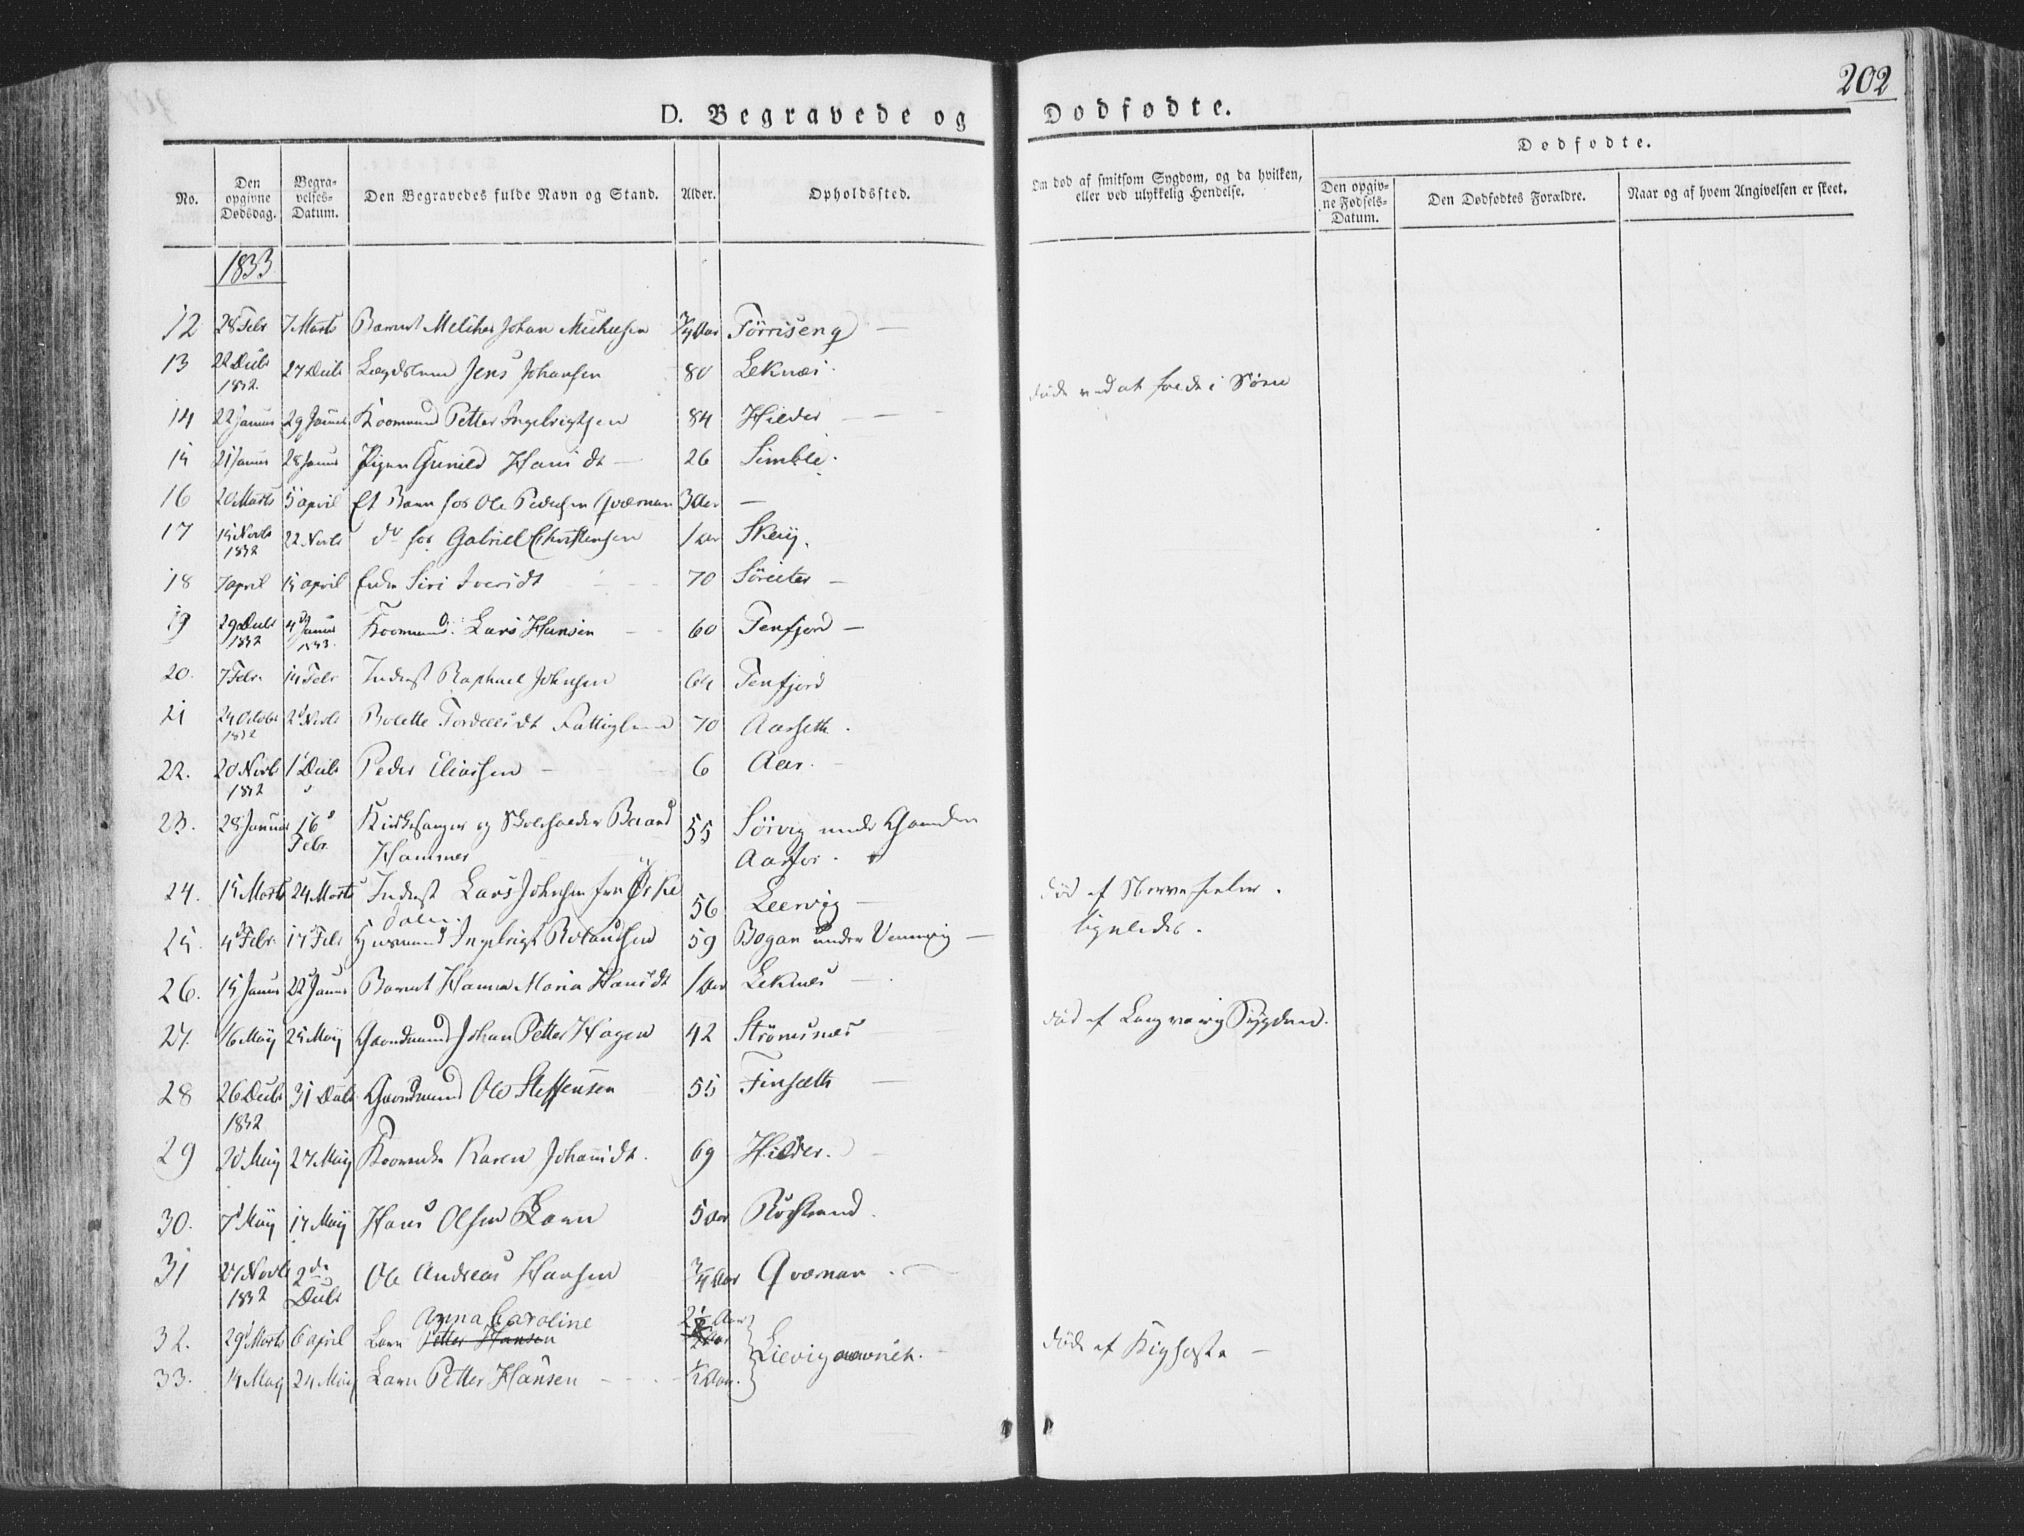 202
D. Begravede og Dødfødte.
No.
Den opgivne Dødsdag.
Begravelses-Datum.
Den Begravedes fulde Navn og Stand.
Alder.
Opholdssted.
Om død af smitsom Sygdom, og da hvilken, eller ved ulykkelig Hendelse.
Dødfødte.
Den opgivne Fødsels-Datum.
Den Dødfødtes Forældre.
Naar og af hvem Angivelsen er skeet.
1833
12 28 Febr 7 Marts Barnet Johan 3/4 Aar Tørriseng
13 22 Decbr 1832 27 Decbr Lægdslem Jens Johansen 80 Leknæs
14 22 Januar 29 Januar Koemand Petter Ingebrigtsen 84 Hilder
15 21 Januar 28 Januar Pigen Gunild Hansdt 26 Simble
16 20 Marts 5 april Et Barn for Ole Pedersen Qværnan 3 Aar —
17 15 Novbr 1832 22 Novbr do for Gabriel Christensen 1 Aar Skeij
18 7 april 15 april Enke Siri Iversdt 70 Søreter
19 29 Decbr 1832 4 Januar 1833 Koemand Lars Hansen 60 Tenfjord
20. 7 Febr. 14 Febr Inderst Raphael Johnsen 64 Tenfjord
21 24 Octobr 1832 2 Novbr Bolette Tordersdt Fattiglem 70 Aarseth.
22. 20 Novbr 1832 1 Decbr Peder Eliassen 6 Aar.
23. 28 Januar 16 Febr. Kirkesanger og Skoleholder Berand Hammer 55 Sørvig under Gaarden Aarfor.
24. 15 Marts 24 Marts Inderst Lars Johnsen fra Ørke dalen. 56 Leervig død af Nervefeber.
25. 4 Febr. 17 Febr Huusmand Ingebrigt Rolandsen 59 Bogan under Vennevig ligeledes.
26. 15 Januar 22 Januar Barnet Hanna Maria Hansdt 1 Aar Leknes
27. 16 Maij 25 Maij Gaardmand Johan Petter Hagen 42 Strømsnæs død af Langvarig Sygdom.
28 26 Decbr 1832 31 Decbr Gaardmand Ole Steffensen 55 Finsæth
29 20 Maij 27 Maij Koemands Karen Johansdt. 69 Hilder.
30. 7 Maij 17 Maij Hans Olsen Barn 5 Aar Rødstrand.
31 27 Novbr 1832 2den Decbr Ole Andreas Hansen 3/4 Aar Qværnan.
Anna Caroline 2½ Aar
32. 29 Marts 6 april Barn Petter Hansen Lievig døde af Kighoste
33. 14 Maij 24 Maij Barn Petter Hansen ½ Aar.